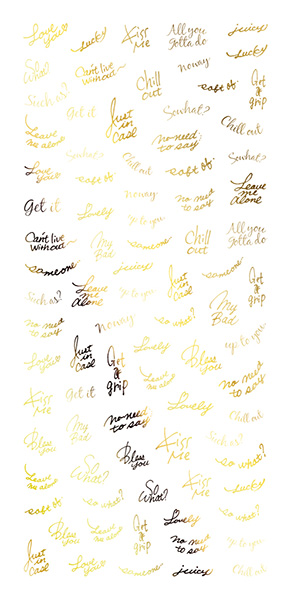 Love you!!
Lucky
Kiss Me
All you gotta do
juicy
So What?
Can't live without~
Chill out
no way
Lucky
Such as?
Get it
Just in Case
So what?
soft of.
Get a grip
Leave me alone
no need to say
Chill out
Love you!!
So what?
soft of.
Chill out
no way
So what?
Get it
Lovely
up to you
no need to say
Leave me alone
Can't live without~
My Bad
someone
Chill out
All you gotta do
someone
Leave me alone
juicy
Just in Case
Get a grip
Such as?
up to you
My Bad
no need to say
no way
so what?
Love you!!
Just in Case
Get a grip
Lovely
Bless you
up to you
Kiss Me
Get it
Leave me alone
Lovely
no need to say
My Bad
no need to say
Kiss Me
Such as?
Chill out
Leave me alone
So What?
Bless you
so what?
Lucky
soft of.
so what?
So What?
Kiss Me
Bless you
Bless you
Leave me alone
Get a grip
Lovely
no need to say
so what?
Just in Case
Leave me alone
someone
juicy
Chill out